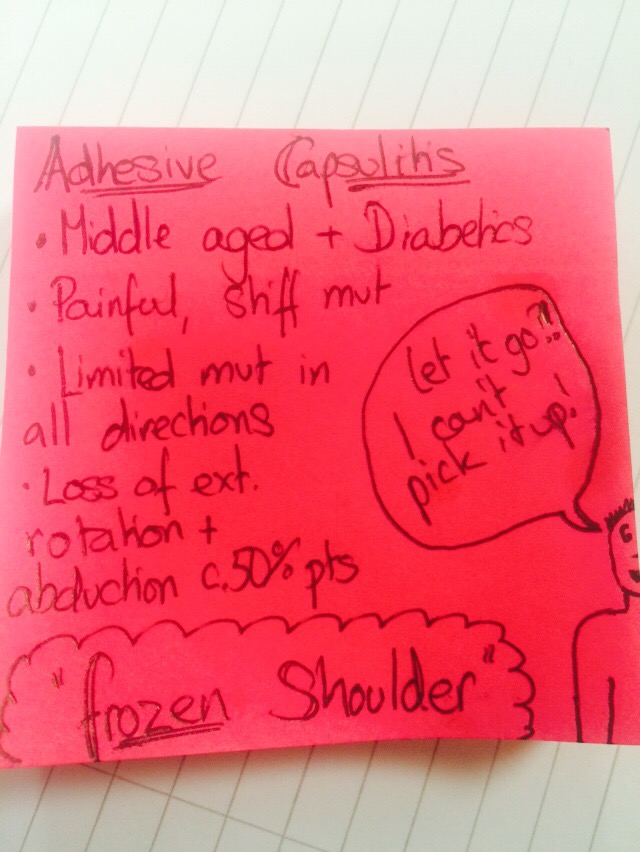 Adhesive Capsulitis
• Middle aged + Diabetics
• Painful, stiff mvt
• Limited mvt in
all directions
• Loss of ext.
rotation +
abduction c.50% pts
let it go?!!
I can't
pick it up!
"frozen Shoulder"